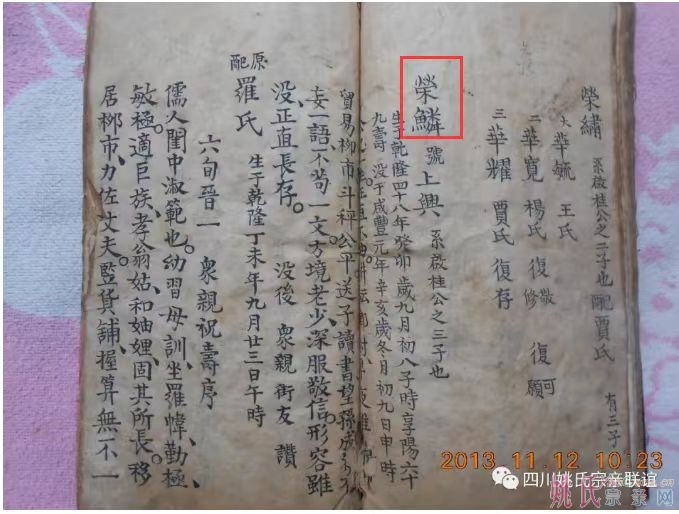 榮繡 系啟桂公之二子也 配賈氏 有三子
大 華毓 王氏
二 華寬 楊氏 復敬 復修 復願
三 華耀 賈氏 復存
榮鱗 號上興 系啟桂公之三子也
生于乾隆四十八年癸卯歲九月初八子時享陽六十
九壽 没于咸豐元年辛亥歲冬月初九日申時
貿易柳市斗秤公平送子讀書望孫成
妄一語不苟一文方境老少深服敬信形容雖
没正直長存 没後 衆親 街友 讚
原配 羅氏 生于乾隆丁未年九月廿三日午時
六旬晉一 衆親祝壽序
儒人閨中淑範也幼習母訓坐羅幃勤極
敏極適巨族孝翁姑和妯娌固其所長移
居柳市力佐丈夫監貨鋪握算無不一
2013.11.12 10:23
四川姚氏宗亲联谊
姚氏宗亲网